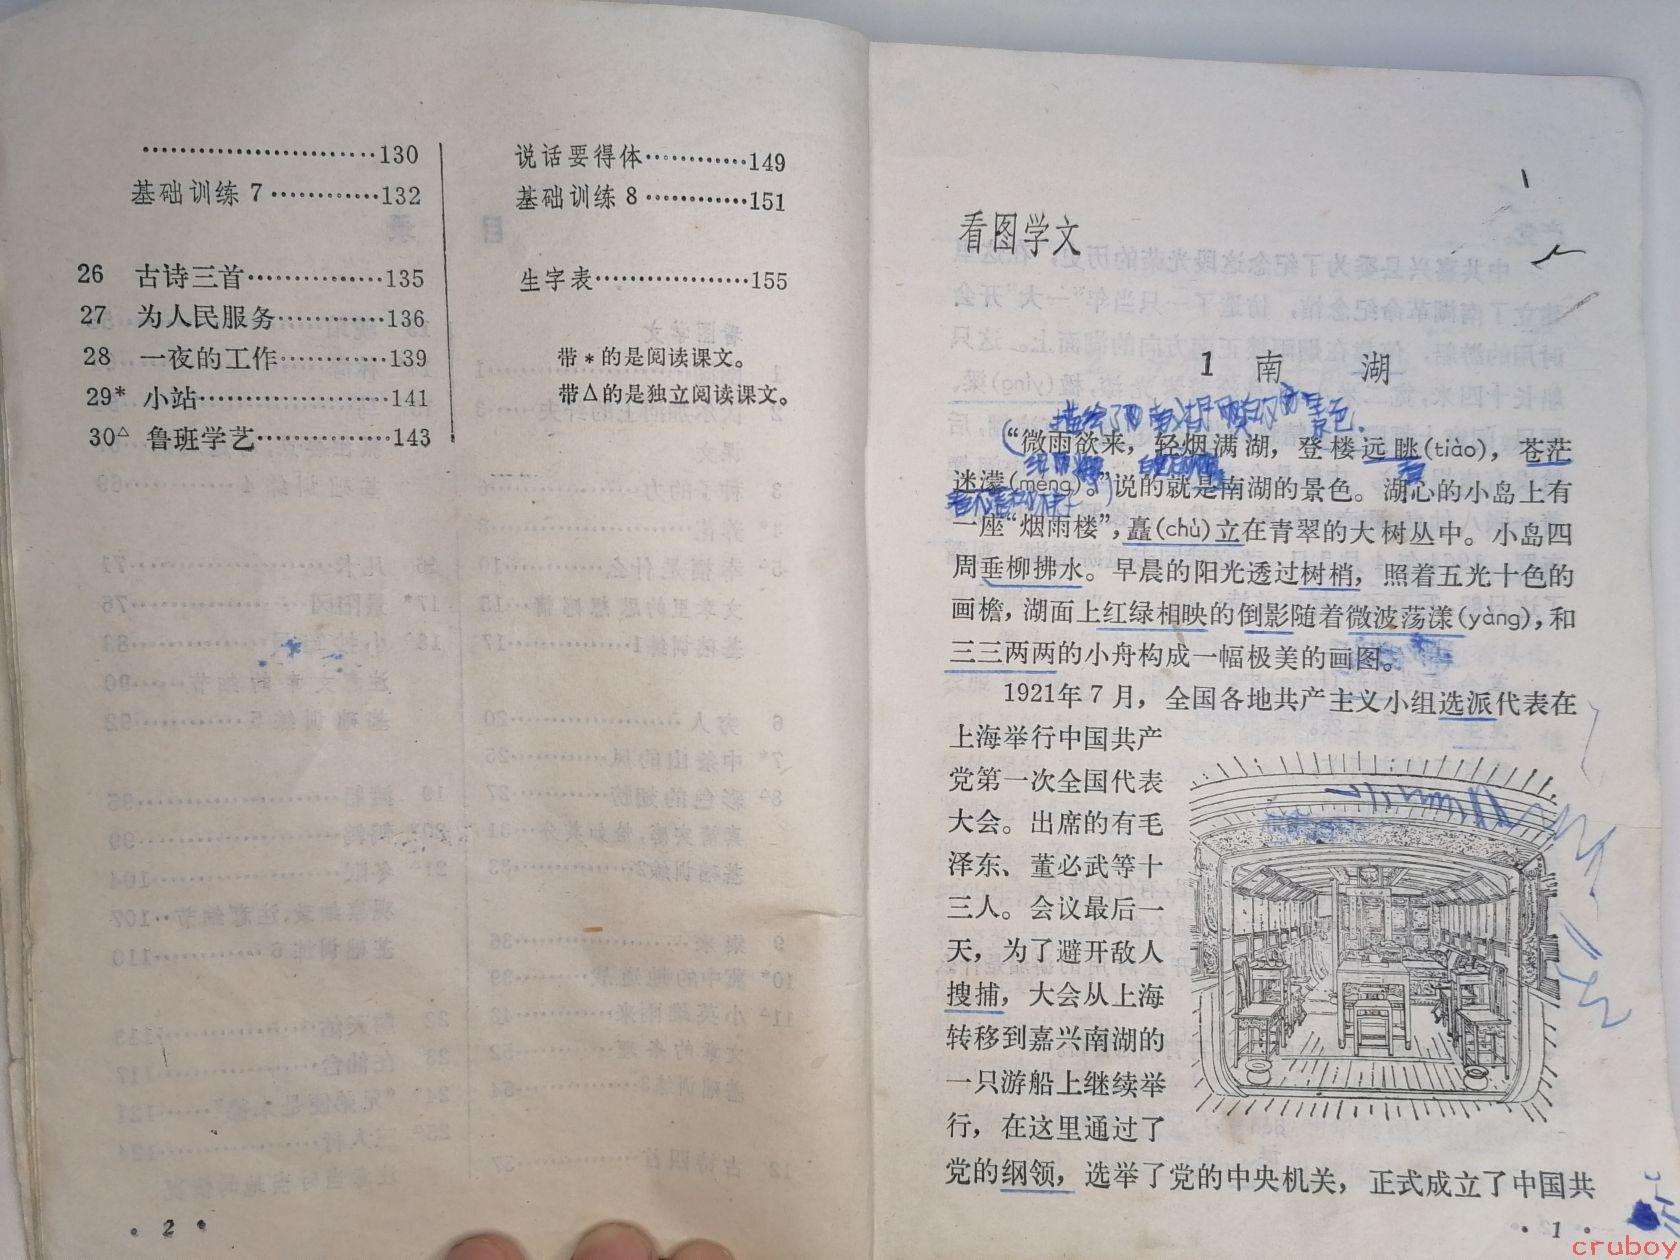 ……………………130
基础训练7…………132
26 古诗三首……………135
27 为人民服务…………136
28 一夜的工作…………139
29* 小站…………………141
30△ 鲁班学艺……………143
说话要得体…………149
基础训练8…………151
生字表………………155
带*的是阅读课文。
带△的是独立阅读课文。
·2·
看图学文
1 南 湖
“微雨欲来，轻烟满湖，登楼远眺(tiào)，苍茫
迷濛(méng)。”说的就是南湖的景色。湖心的小岛上有
一座“烟雨楼”，矗(chù)立在青翠的大树丛中。小岛四
周垂柳拂水。早晨的阳光透过树梢，照着五光十色的
画檐，湖面上红绿相映的倒影随着微波荡漾(yàng)，和
三三两两的小舟构成一幅极美的画图。
1921年7月，全国各地共产主义小组选派代表在
上海举行中国共产
党第一次全国代表
大会。出席的有毛
泽东、董必武等十
三人。会议最后一
天，为了避开敌人
搜捕，大会从上海
转移到嘉兴南湖的
一只游船上继续举
行，在这里通过了
党的纲领，选举了党的中央机关，正式成立了中国共
·1·
cruboy